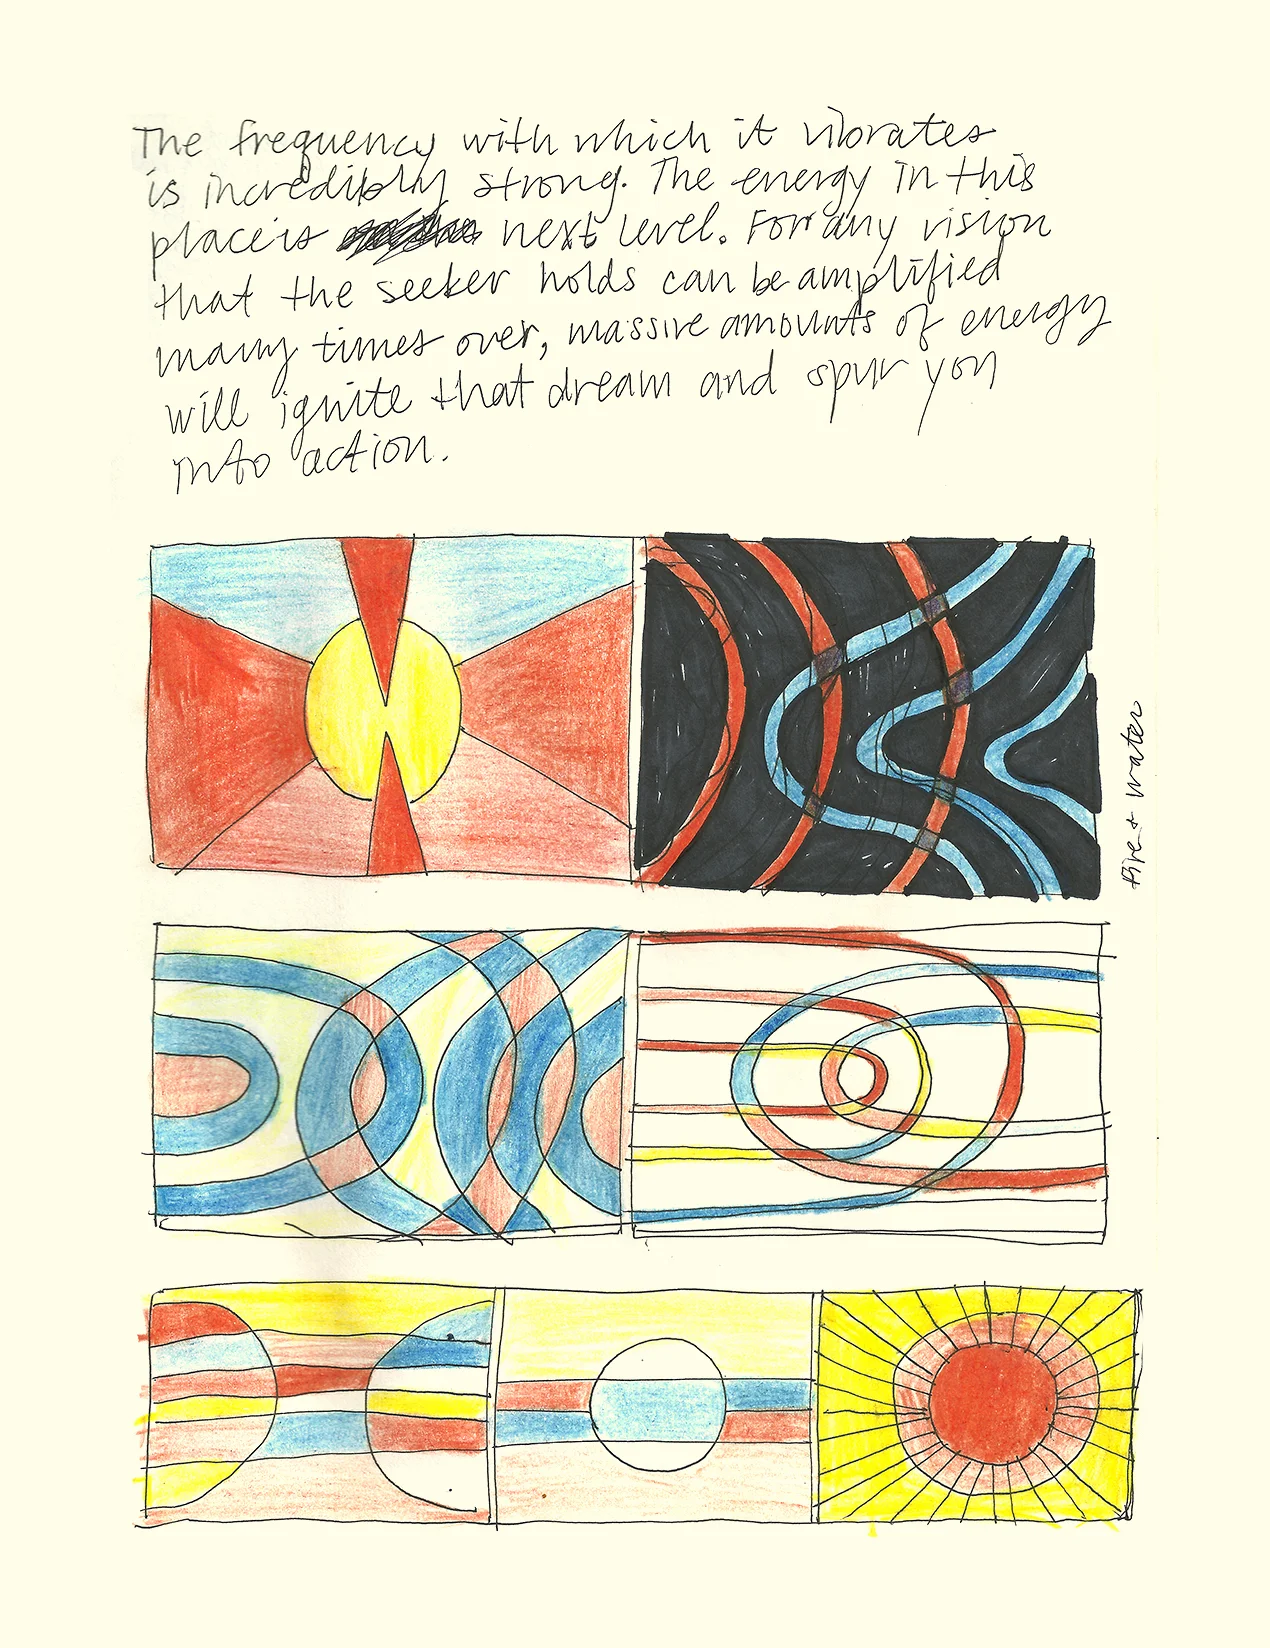 The frequency with which it vibrates
is incredibly strong. The energy in this
place is next level. For any vision
that the seeker holds can be amplified
many times over, massive amounts of energy
will ignite that dream and spur you
into action.
Fire + Water